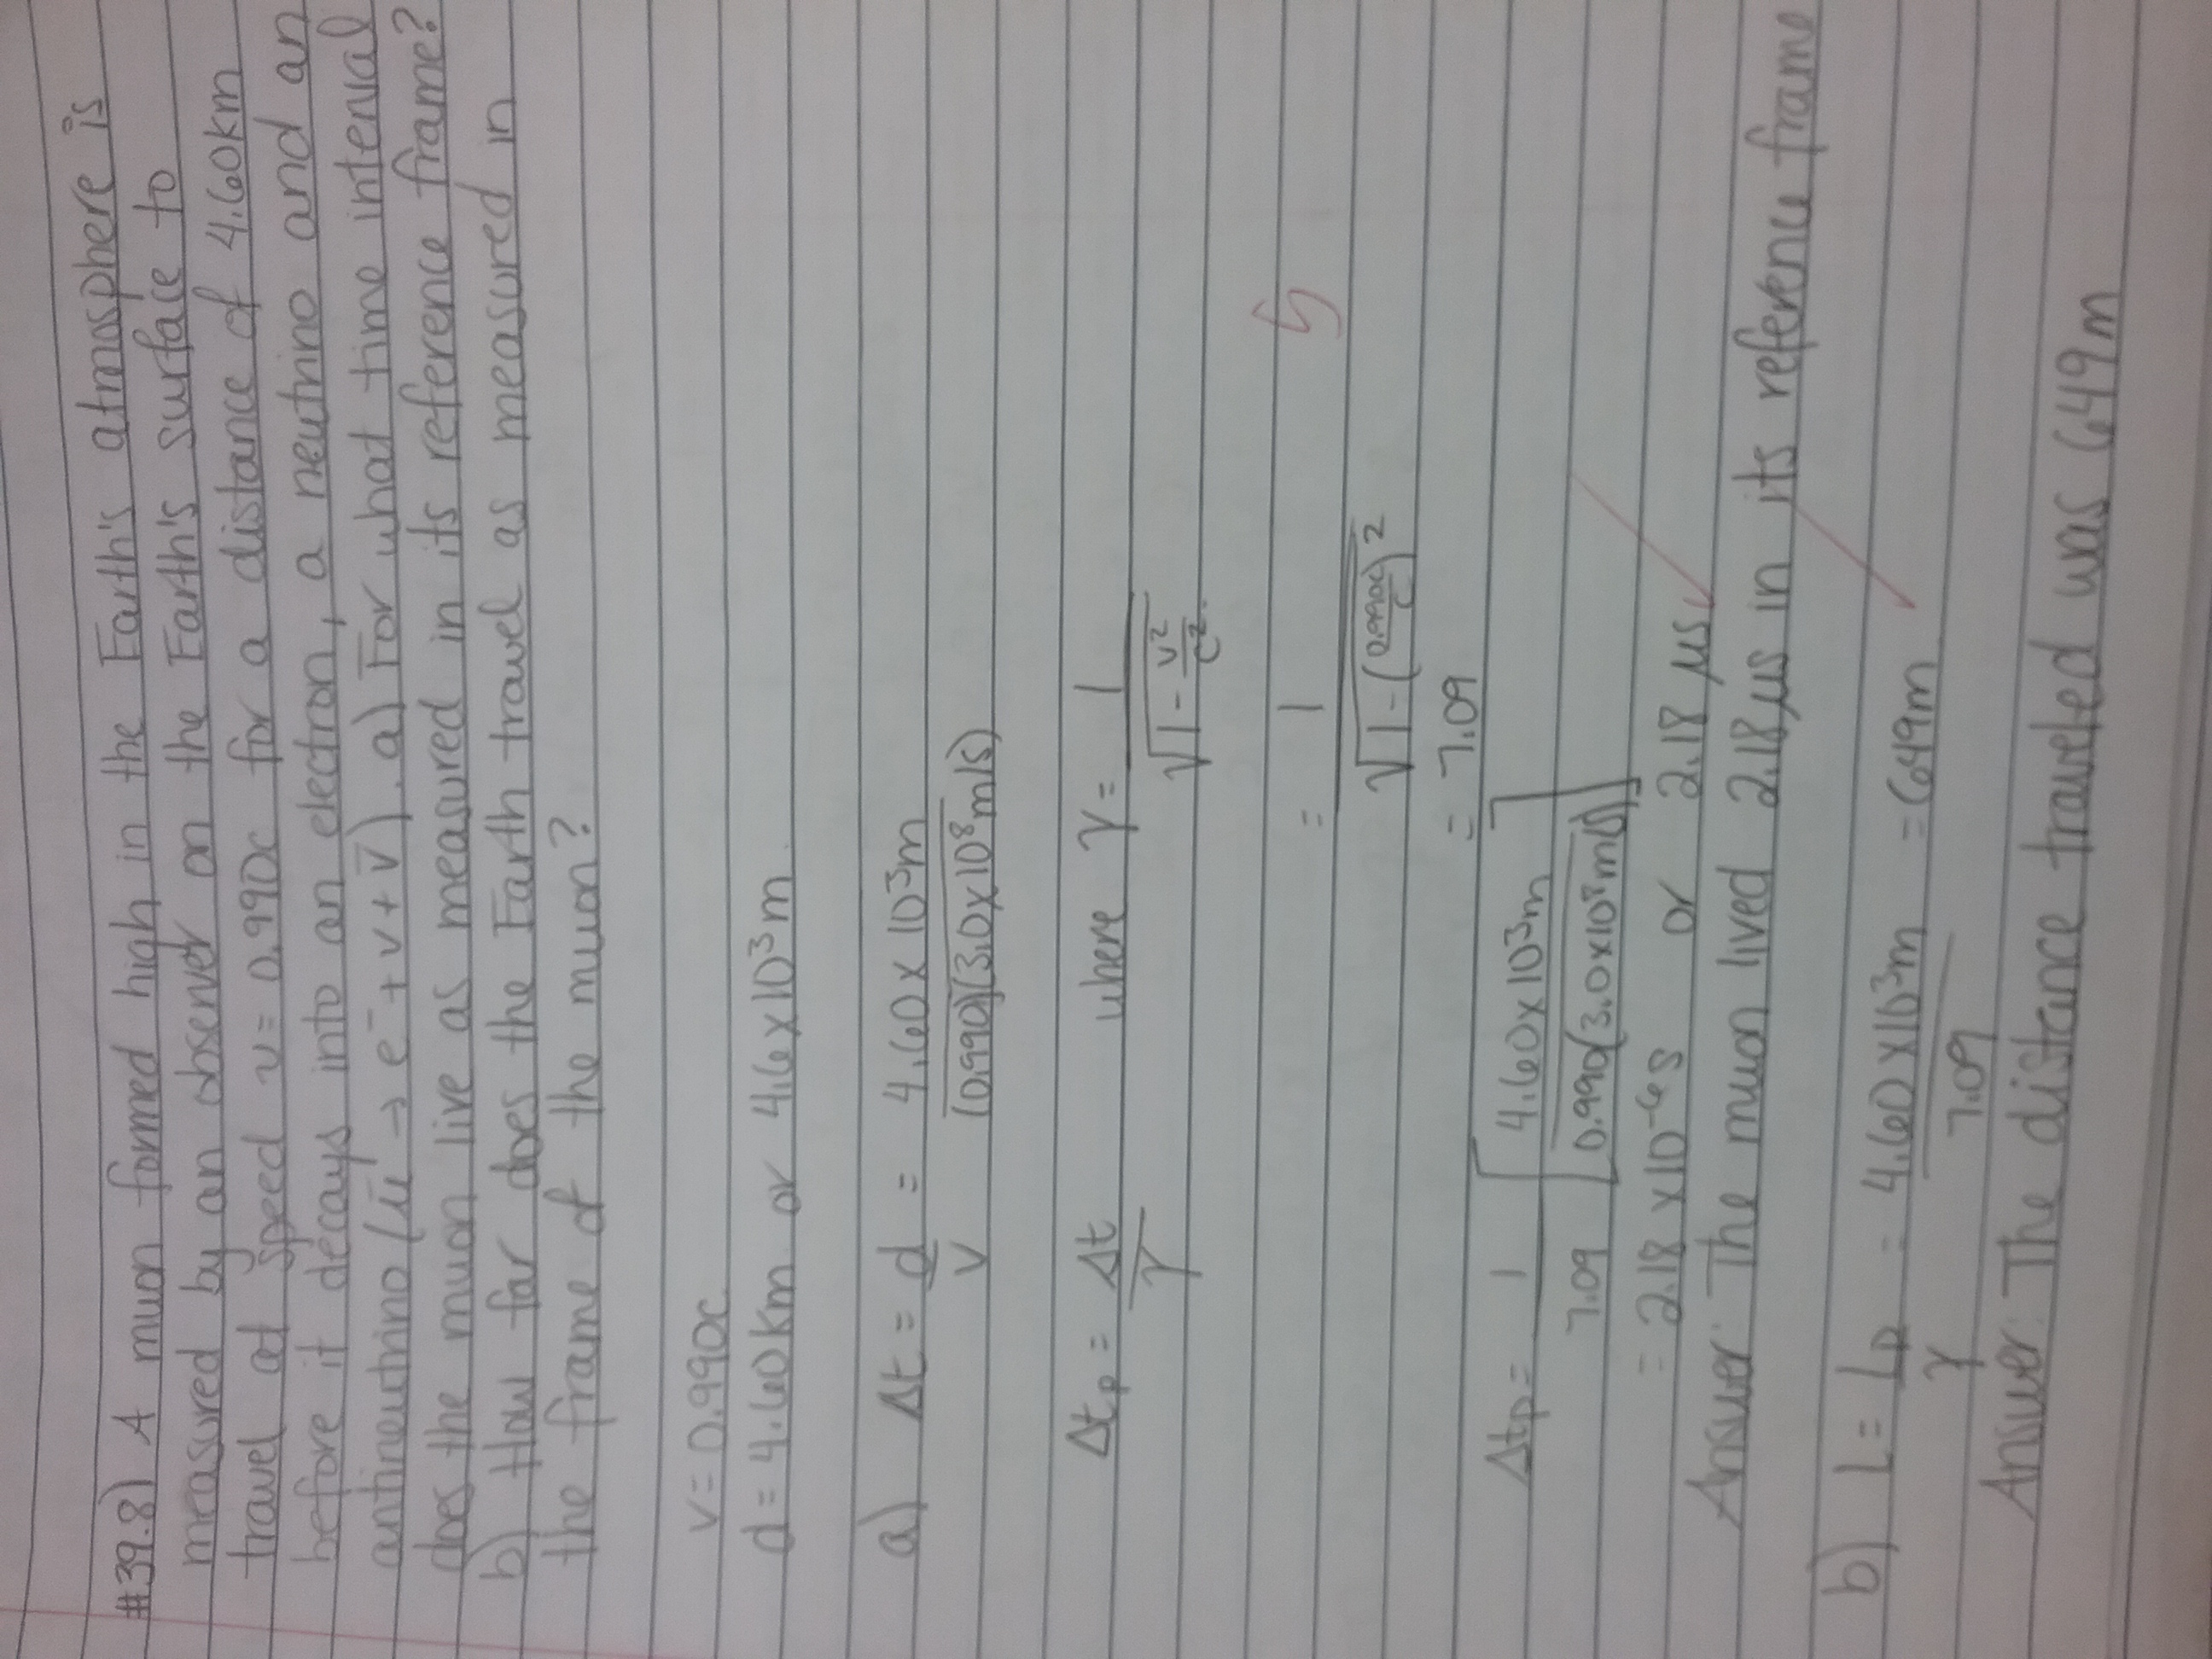 #39.8) A muon formed high in the Earth's atmosphere is
measured by an observer on the Earth's surface to
travel at speed v = 0.990c for a distance of 4.60km
before it decays into an electron, a neutrino and an
antineutrino (μ⁻ → e⁻ + v + v̄). a) For what time interval
does the muon live as measured in its reference frame?
b) How far does the Earth travel as measured in
the frame of the muon?
v = 0.990c
d = 4.60km or 4.6 x 10³m
a) Δt = d/v = 4.60 x 10³m / (0.990)(3.0 x 10⁸ m/s)
Δtp = Δt/γ where γ = 1/√(1 - v²/c²)
= 1/√(1 - (0.990c/c)²)
= 7.09
Δtp = 1/7.09 [4.60 x 10³m / 0.990(3.0 x 10⁸ m/s)]
= 2.18 x 10⁻⁶s or 2.18 μs
Answer: The muon lived 2.18 μs in its reference frame
b) L = Lp/γ = 4.60 x 10³m / 7.09 = 649m
Answer: The distance traveled was 649m